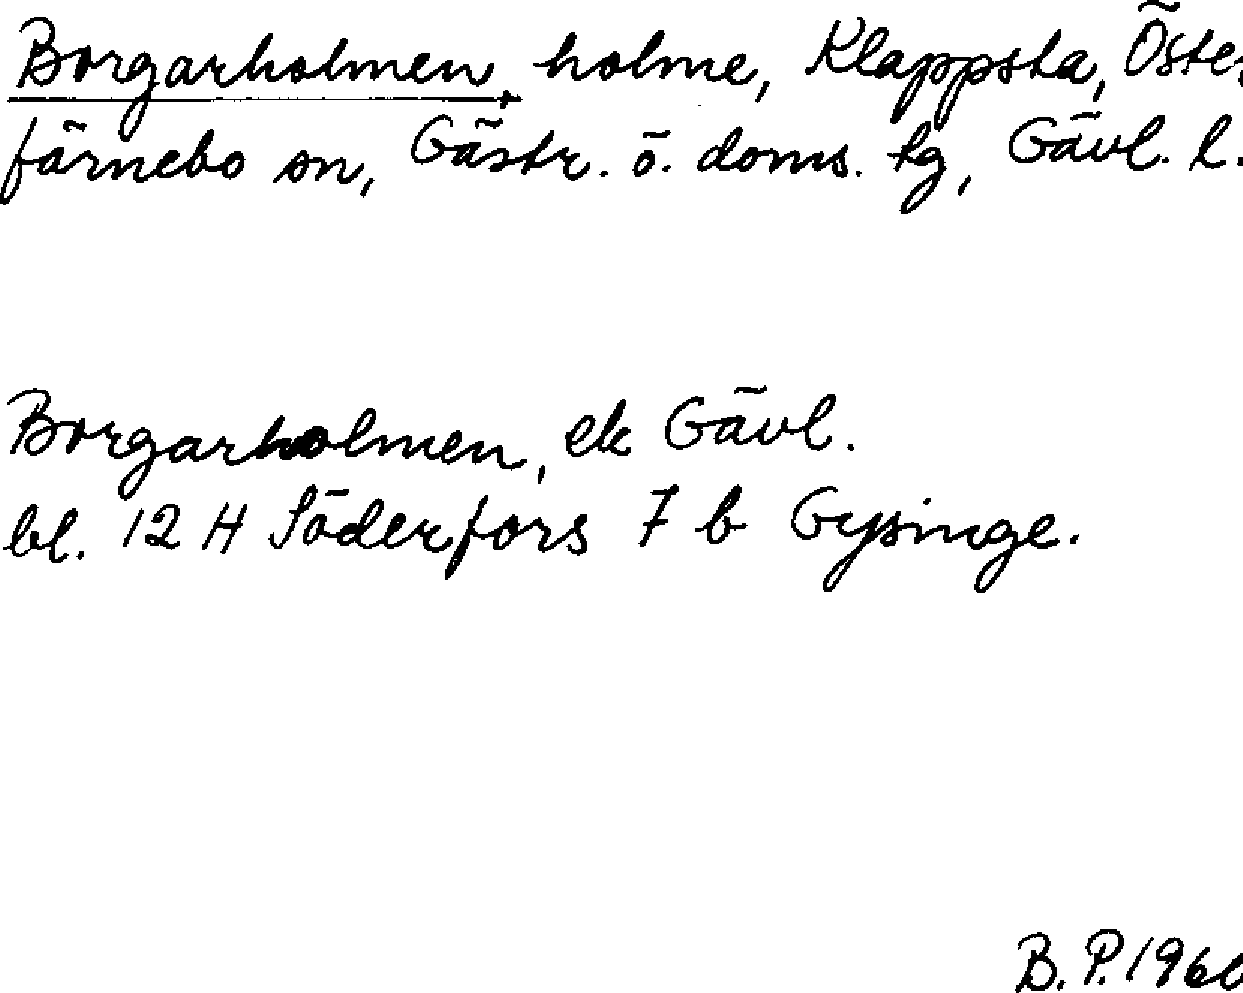 Borgarholmen, holme, Klappsta, Öster
färnebo sn, Gästr. ö. doms. tg, Gävl. l.
Borgarholmen, ek Gävl.
bl. 12 H Söderfors 7 b Gysinge.
B. P. 1960